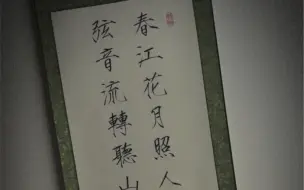 春江花月照人
弦音流轉聽山